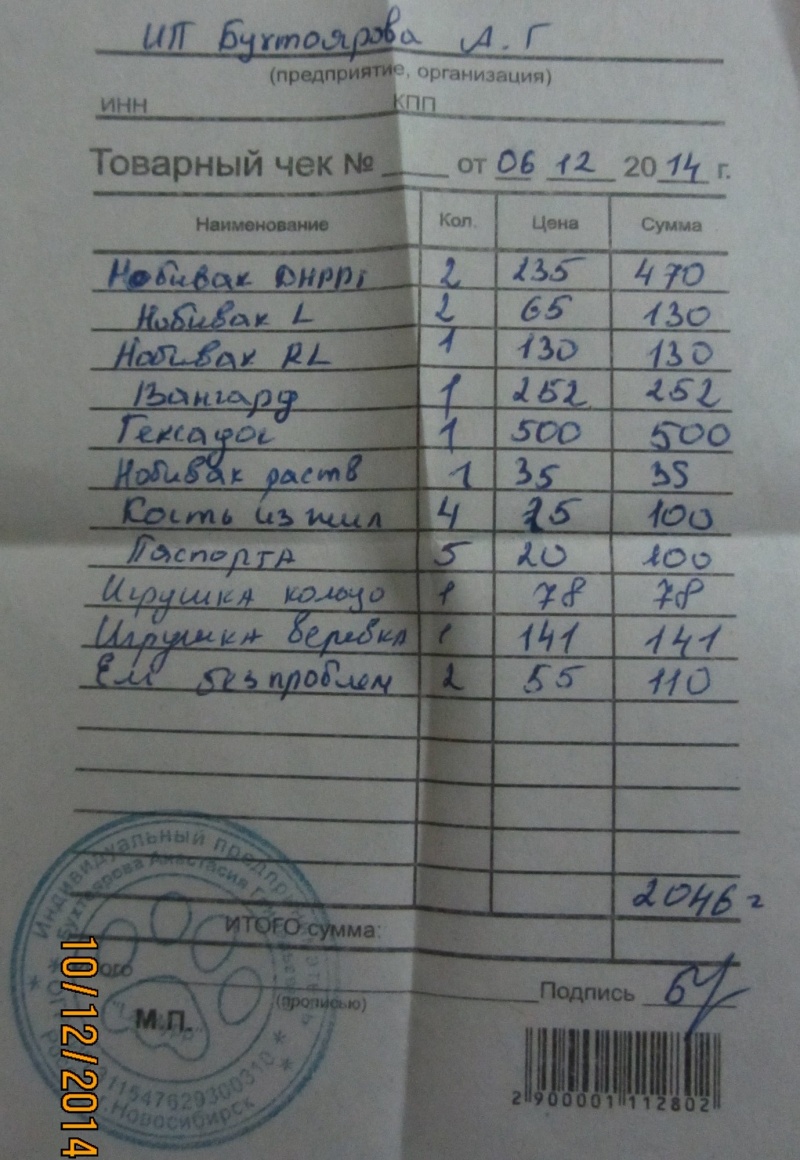 ИП Бухтоярова А. Г
(предприятие, организация)
ИНН КПП
Товарный чек № от 06 12 2014 г.
Наименование Кол. Цена Сумма
Нобивак DHPPi 2 235 470
Нобивак L 2 65 130
Нобивак RL 1 130 130
Вангард 1 252 252
Гексадог 1 500 500
Нобивак раств 1 35 35
Кость из жил 4 25 100
Паспорта 5 20 100
Игрушка кольцо 1 78 78
Игрушка веревка 1 141 141
Ем без проблем 2 55 110
2046
ИТОГО сумма:
(прописью)
Подпись
М.П.
Индивидуальный предприниматель
Бухтоярова Анастасия
г.Новосибирск
2 900001 112802
10/12/2014